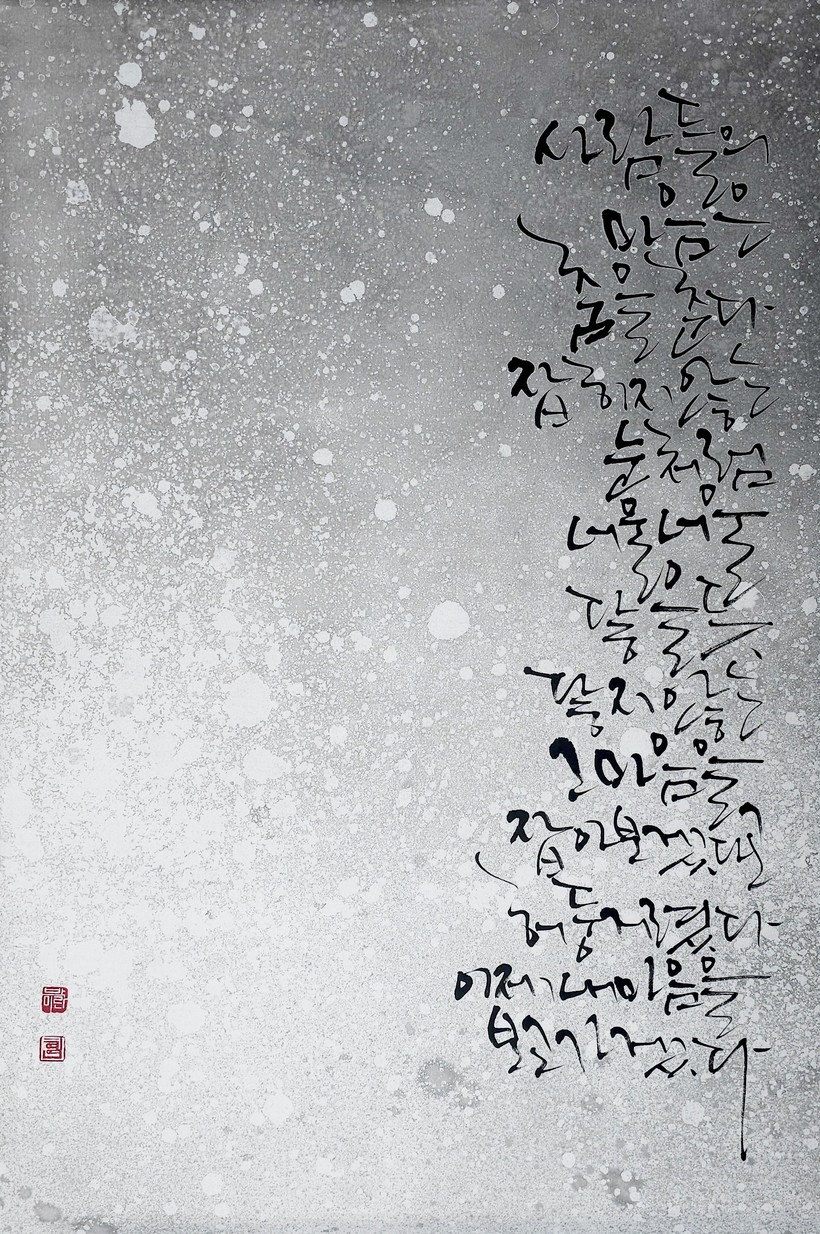 사람들의
마음은
춤을 춘다
잡히지 않는
눈처럼
너울너울
닿을듯
닿지 않는
그 마음을
잡아보겠다고
허둥거렸다
이제 내 마음을
보러가겠다